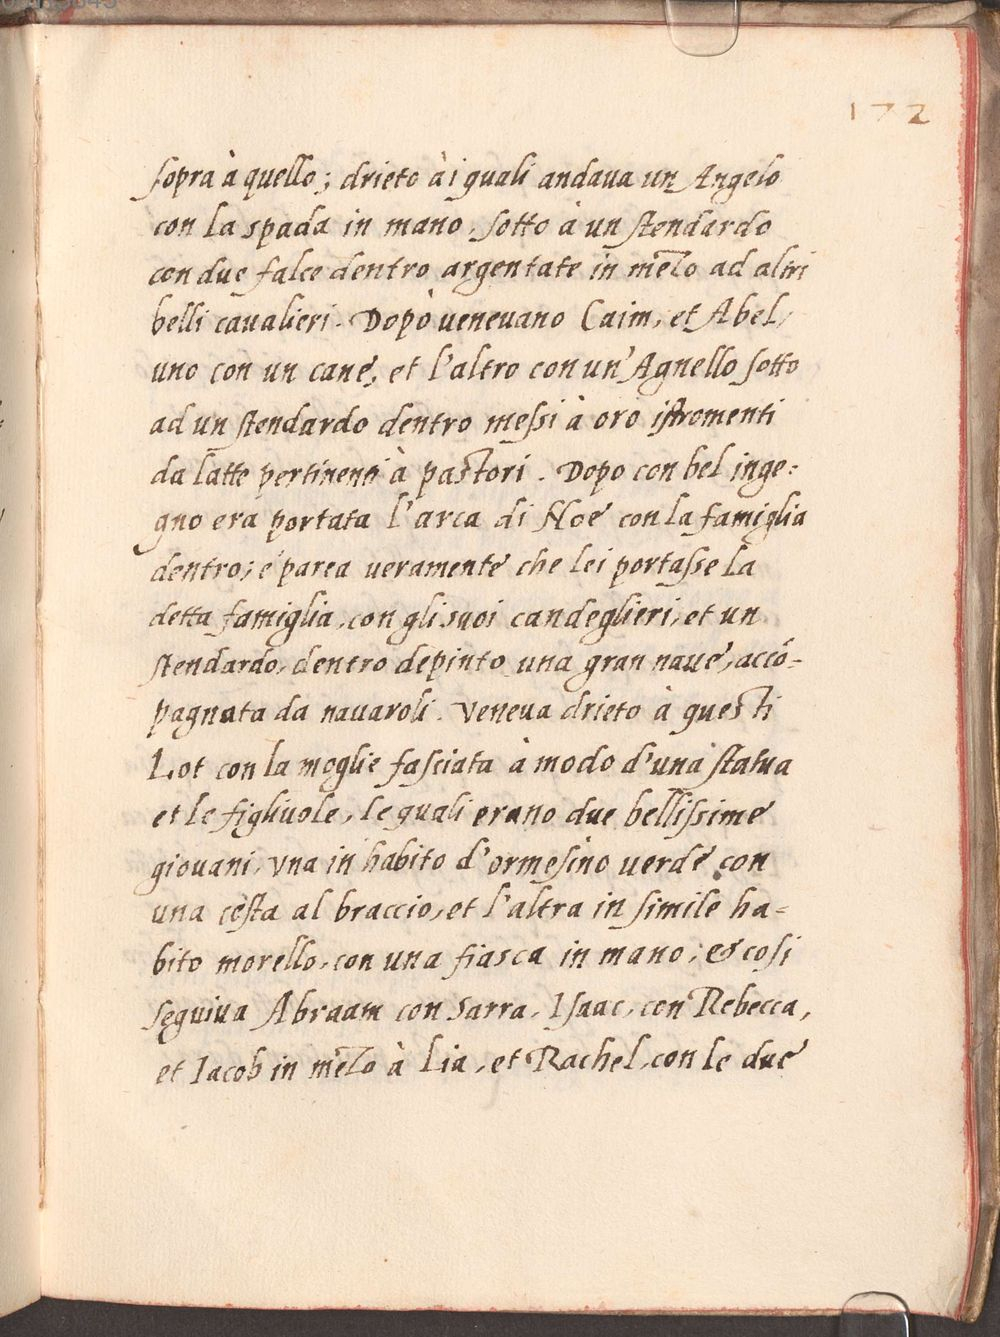 172
sopra à quello; drieto à i quali andaua un Angelo
con la spada in mano, sotto à un stendardo
con due falce dentro argentate in mezo ad altri
belli caualieri. Dopò ueneuano Caim, et Abel,
uno con un cane, et l'altro con un' Agnello sotto
ad un stendardo dentro messi à oro istromenti
da latte pertinenti à pastori. Dopo con bel inge:
gno era portata l'arca di Noe con la famiglia
dentro; e parea ueramente che lei portasse la
detta famiglia, con gli suoi candeglieri, et un
stendardo, dentro depinto una gran naue, accõ-
pagnata da nauaroli. Veneua drieto à questi
Lot con la moglie fasciata à modo d'una statua
et le figliuole, le quali erano due bellissime
giouani, vna in habito d'ormesino uerde con
una cesta al braccio, et l'altra in simile ha-
bito morello, con una fiasca in mano; & cosi
seguiua Abraam con Sarra, Isaac, con Rebecca,
et Iacob in mezo à Lia, et Rachel, con le due